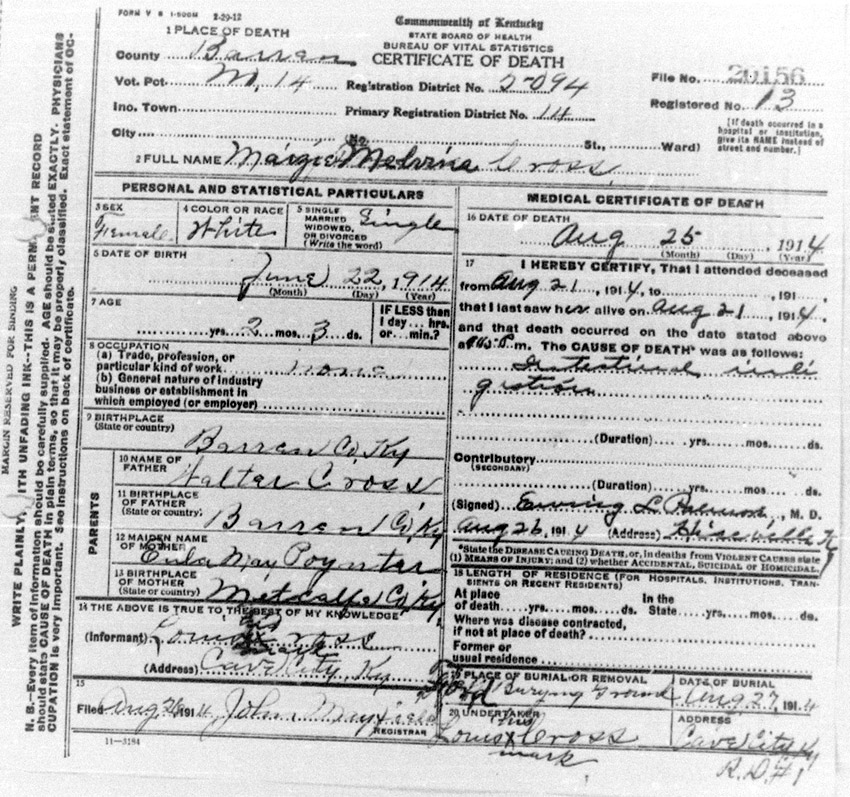 FORM V S 1-500M 2-29-12
Commonwealth of Kentucky
STATE BOARD OF HEALTH
BUREAU OF VITAL STATISTICS
CERTIFICATE OF DEATH
1 PLACE OF DEATH
County Barren
Vot. Pct. M, 14
Ino. Town
City
Registration District No. 2094
Primary Registration District No. 14
File No. 20156
Registered No. 13
No. St., Ward)
[If death occurred in a
hospital or institution,
give its NAME instead of
street and number.]
2 FULL NAME Margie Melvina Cross
PERSONAL AND STATISTICAL PARTICULARS
3 SEX
Female
4 COLOR OR RACE
White
5 SINGLE
MARRIED
WIDOWED,
OR DIVORCED
(Write the word)
Single
6 DATE OF BIRTH
June 22, 1914
(Month) (Day) (Year)
7 AGE
yrs. 2 mos. 3 ds.
IF LESS than
1 day... hrs.
or... min.?
8 OCCUPATION
(a) Trade, profession, or
particular kind of work none
(b) General nature of industry
business or establishment in
which employed (or employer)
9 BIRTHPLACE
(State or country)
Barren Co, Ky
PARENTS
10 NAME OF
FATHER
Walter Cross
11 BIRTHPLACE
OF FATHER
(State or country)
Barren Co, Ky
12 MAIDEN NAME
OF MOTHER
Eula May Poynter
13 BIRTHPLACE
OF MOTHER
(State or country)
Metcalfe Co, Ky
14 THE ABOVE IS TRUE TO THE BEST OF MY KNOWLEDGE
(Informant) Louis Cross
(Address) Cave City, Ky
15
Filed Aug 26, 1914 John Mayfield
REGISTRAR
11-3184
MEDICAL CERTIFICATE OF DEATH
16 DATE OF DEATH
Aug 25, 1914
(Month) (Day) (Year)
17 I HEREBY CERTIFY, That I attended deceased
from Aug 21, 1914, to , 191
that I last saw her alive on Aug 21, 1914,
and that death occurred on the date stated above
at P.m. The CAUSE OF DEATH* was as follows:
Intestinal indi
gestion
(Duration) yrs. mos. ds.
Contributory
(SECONDARY)
(Duration) yrs. mos. ds.
(Signed) Ewing L. , M. D.
Aug 26, 1914 (Address) Hiseville Ky
*State the DISEASE CAUSING DEATH, or, in deaths from VIOLENT CAUSES state
(1) MEANS OF INJURY; and (2) whether ACCIDENTAL, SUICIDAL or HOMICIDAL.
18 LENGTH OF RESIDENCE (FOR HOSPITALS, INSTITUTIONS, TRAN-
SIENTS OR RECENT RESIDENTS)
At place
of death yrs. mos. ds.
In the
State yrs. mos. ds.
Where was disease contracted,
if not at place of death?
Former or
usual residence
19 PLACE OF BURIAL OR REMOVAL
Burying Ground
DATE OF BURIAL
Aug 27, 1914
20 UNDERTAKER
Louis his x Cross
mark
ADDRESS
Cave City Ky
R.D.#1
MARGIN RESERVED FOR BINDING
WRITE PLAINLY, WITH UNFADING INK--THIS IS A PERMANENT RECORD
N. B.--Every item of information should be carefully supplied. AGE should be stated EXACTLY. PHYSICIANS
should state CAUSE OF DEATH in plain terms, so that it may be properly classified. Exact statement of OC-
CUPATION is very important. See instructions on back of certificate.